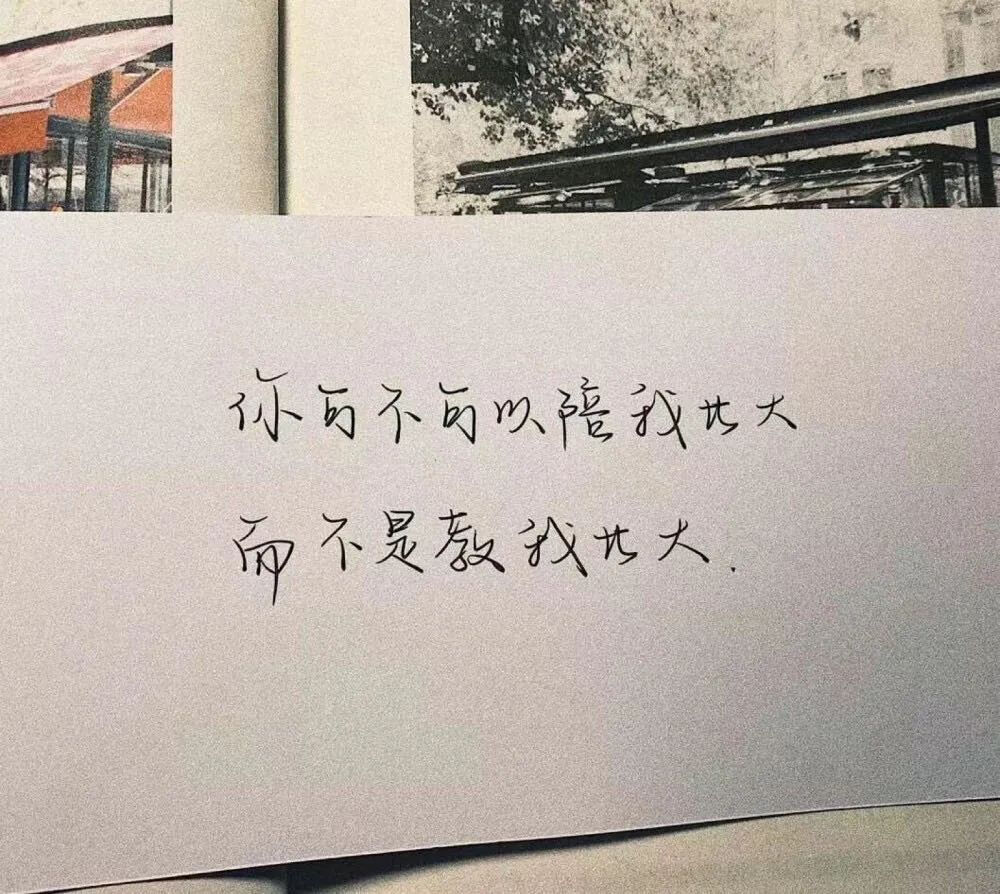 你可不可以陪我长大
而不是教我长大.